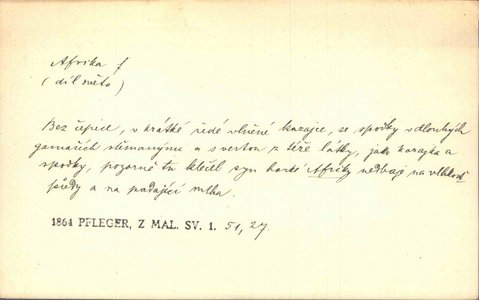 Afrika f
(díl světa)
Bez čepice, v krátké šedé vlněné kazajce, se spodky v dlouhých
gamaších stěsnanými a s vestou z téže látky, jako kazajka a
spodky, pozorně tu klečel syn horké Afriky nedbaje na vlhkost
půdy a na padající mlhu.
1864 PFLEGER, Z MAL. SV. 1. 51, 27.